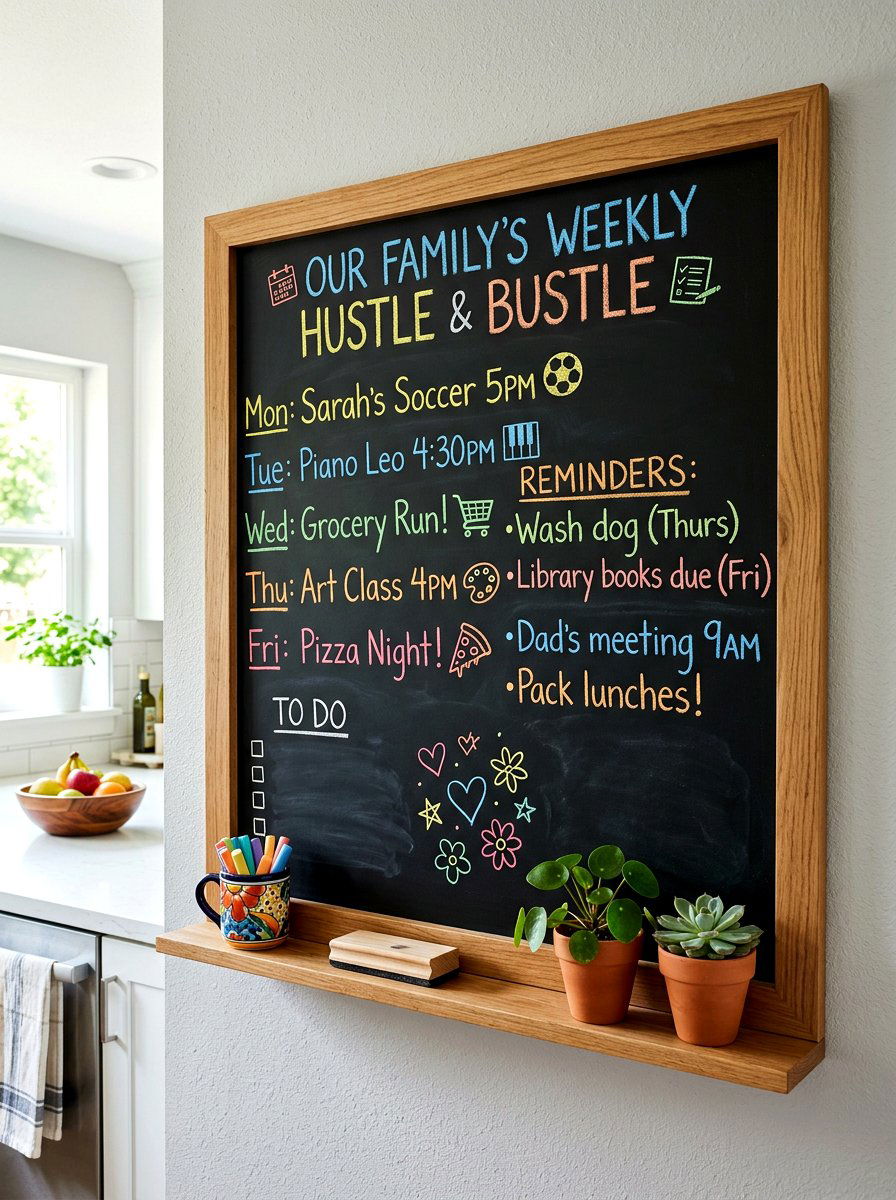 OUR FAMILY'S WEEKLY
HUSTLE & BUSTLE
Mon: Sarah's Soccer 5PM
Tue: Piano Leo 4:30PM
Wed: Grocery Run!
Thu: Art Class 4PM
Fri: Pizza Night!
REMINDERS:
•Wash dog (Thurs)
•Library books due (Fri)
•Dad's meeting 9AM
•Pack lunches!
TO DO